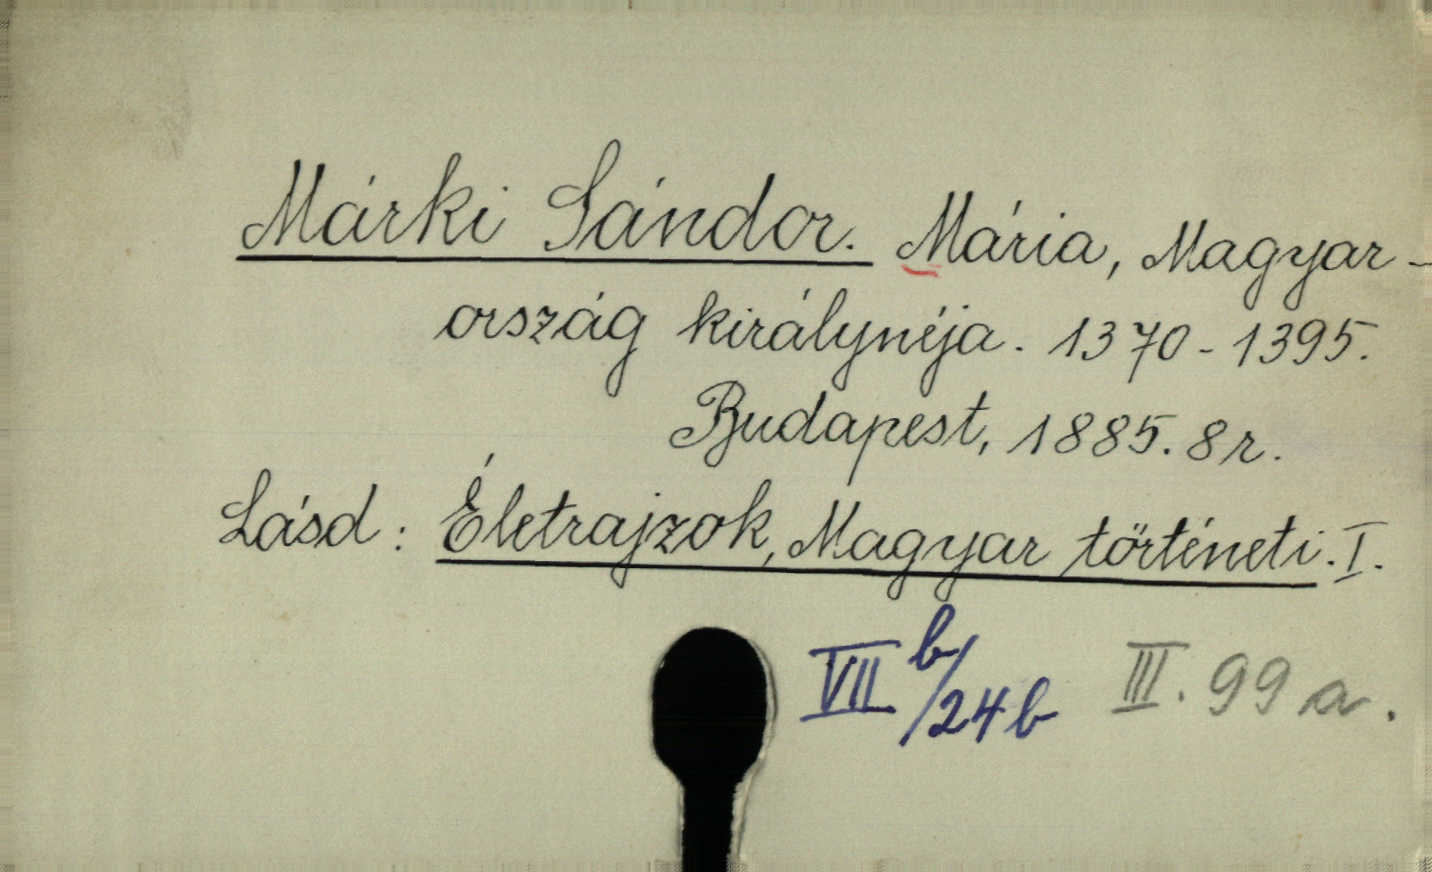 Márki Sándor. Mária, Magyar-
ország királynéja. 1370-1395.
Budapest, 1885. 8r.
Lásd: Életrajzok, Magyar történeti. I.
VII b/24b III. 99a.